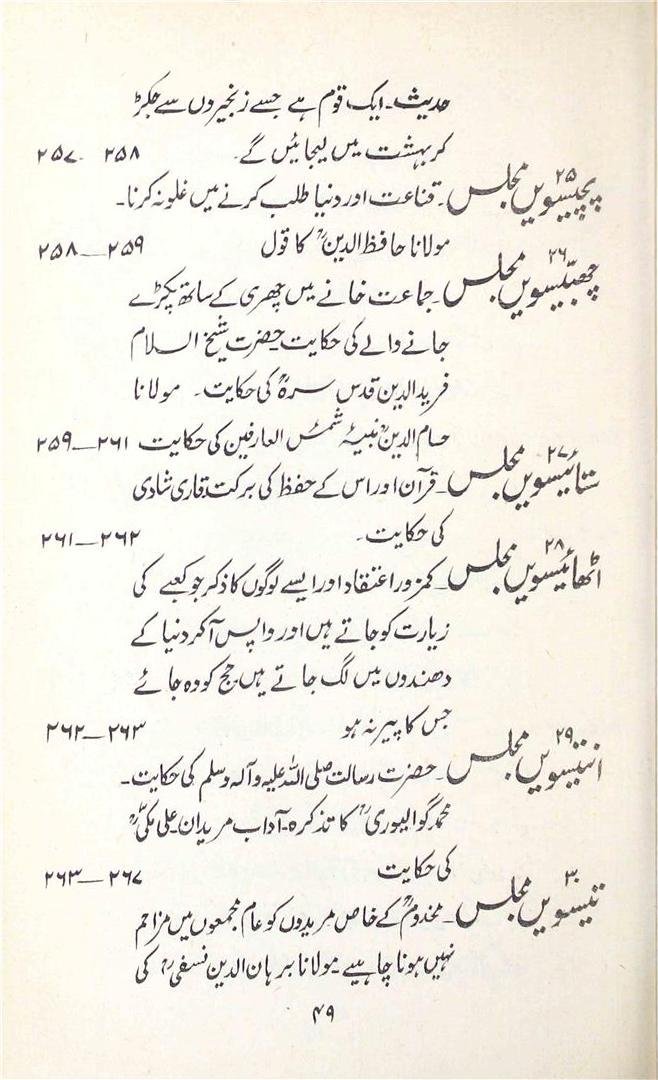 حدیث۔ ایک قوم ہے جسے زنجیروں سے جکڑ
کر بہشت میں لیجائیں گے۔ ۲۵۸ - ۲۵۷
۲۵ پچیسویں مجلس۔ قناعت اور دنیا طلب کرنے میں غلو نہ کرنا۔
مولانا حافظ الدینؒ کا قول ۲۵۹ — ۲۵۸
۲۶ چھبیّسویں مجلس۔ جماعت خانے میں چھری کے ساتھ پکڑے
جانے والے کی حکایت۔ حضرت شیخ السلام
فرید الدین قدس سرہٗ کی حکایت۔ مولانا
حسام الدینؒ نبیۂ شمس العارفین کی حکایت ۲۶۱ — ۲۵۹
۲۷ ستائیسویں مجلس۔ قرآن اور اس کے حفظ کی برکت قاری شادی
کی حکایت۔ ۲۶۲ — ۲۶۱
۲۸ اٹھائیسویں مجلس۔ کمزور اعتقاد اور ایسے لوگوں کا ذکر جو کعبے کی
زیارت کو جاتے ہیں اور واپس آکر دنیا کے
دھندوں میں لگ جاتے ہیں حج کو وہ جائے
جس کا پیر نہ ہو ۲۶۳ — ۲۶۲
۲۹ انتیسویں مجلس۔ حضرت رسالت صلی اللہ علیہ وآلہ وسلم کی حکایت۔
محمد گوالیوریؒ کا تذکرہ۔ آداب مریدان۔ علی مکیؒ
کی حکایت ۲۶۷ — ۲۶۳
۳۰ تیسویں مجلس۔ مخدومؒ کے خاص مریدوں کو عام مجمعوں میں مزاحم
نہیں ہونا چاہیے مولانا برہان الدین نسفیؒ کی
۴۹